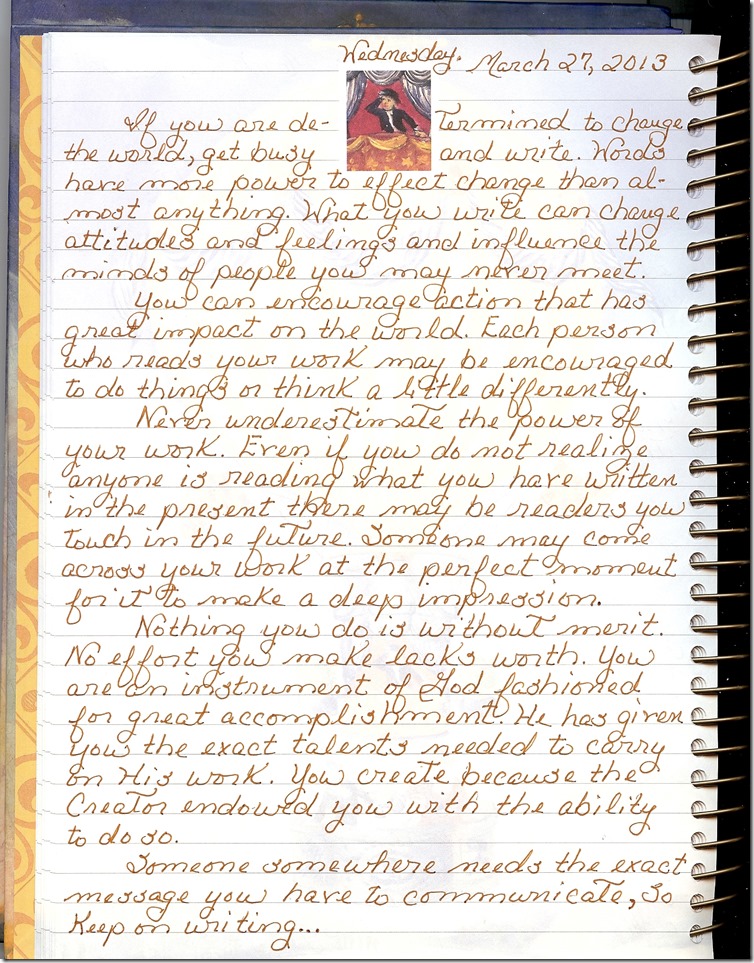 Wednesday. March 27, 2013
If you are de- termined to change
the world, get busy and write. Words
have more power to effect change than al-
most anything. What you write can change
attitudes and feelings and influence the
minds of people you may never meet.
You can encourage action that has
great impact on the world. Each person
who reads your work may be encouraged
to do things or think a little differently.
Never underestimate the power of
your work. Even if you do not realize
anyone is reading what you have written
in the present there may be readers you
touch in the future. Someone may come
across your work at the perfect moment
for it to make a deep impression.
Nothing you do is without merit.
No effort you make lacks worth. You
are an instrument of God fashioned
for great accomplishment. He has given
you the exact talents needed to carry
on His work. You create because the
Creator endowed you with the ability
to do so.
Someone somewhere needs the exact
message you have to communicate, so
keep on writing...